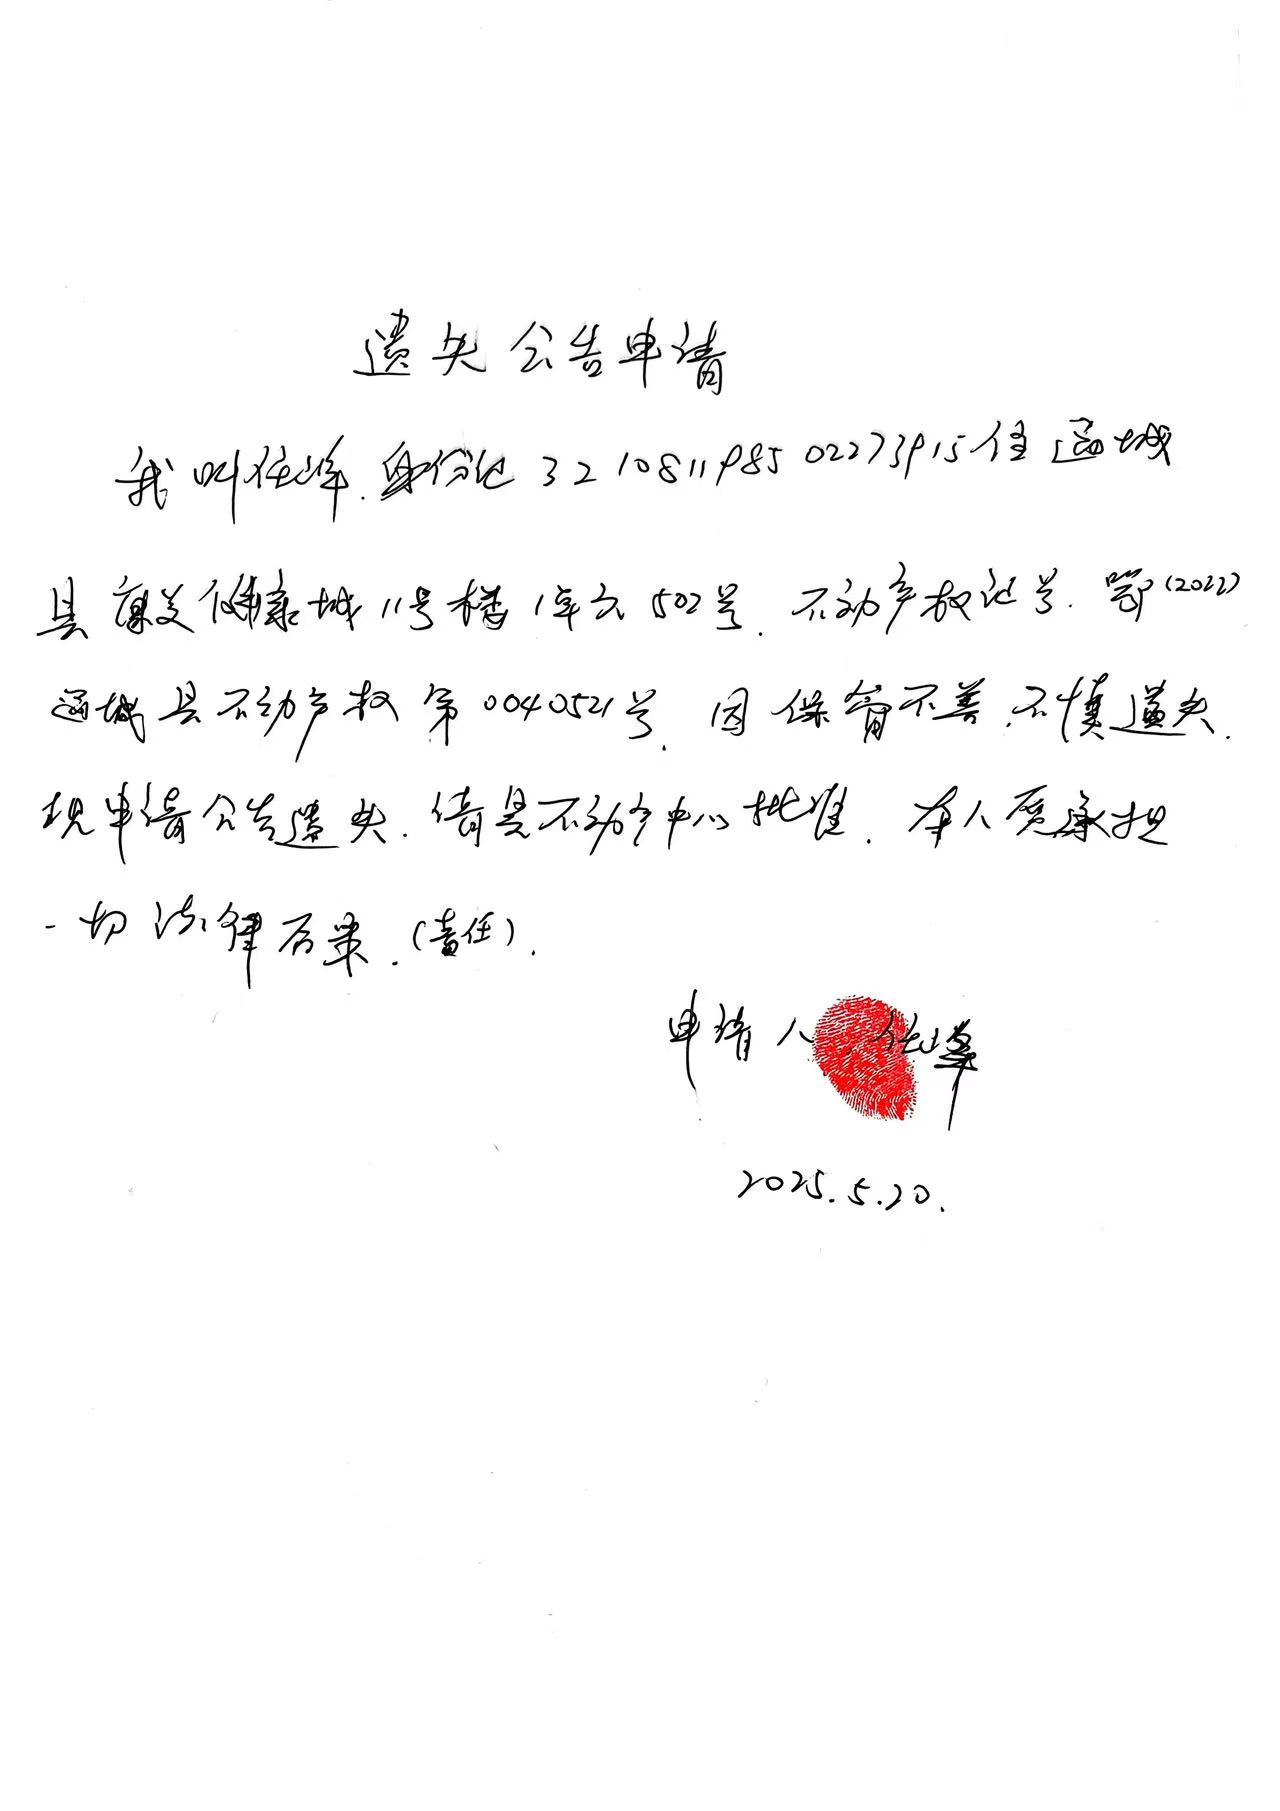 遗失公告申请
我叫任峰.身份证321081198502273915住通城
县康美健康城11号楼1单元502号.不动产权证号.鄂(2022)
通城县不动产权第0040521号.因保管不善.不慎遗失.
现申请公告遗失.请县不动产中心批准.本人愿承担
一切法律后果.(责任).
申请人 任峰
2025.5.20.